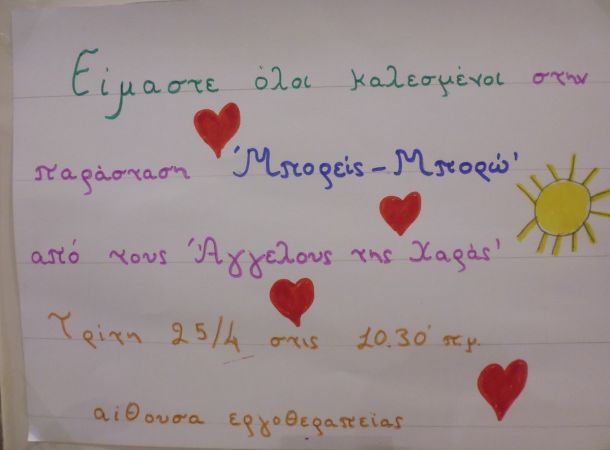 Είμαστε όλοι καλεσμένοι στην
παράσταση 'Μπορείς - Μπορώ'
από τους 'Άγγελους της Χαράς'
Τρίτη 25/4 στις 10.30' πμ.
αίθουσα εργοθεραπείας